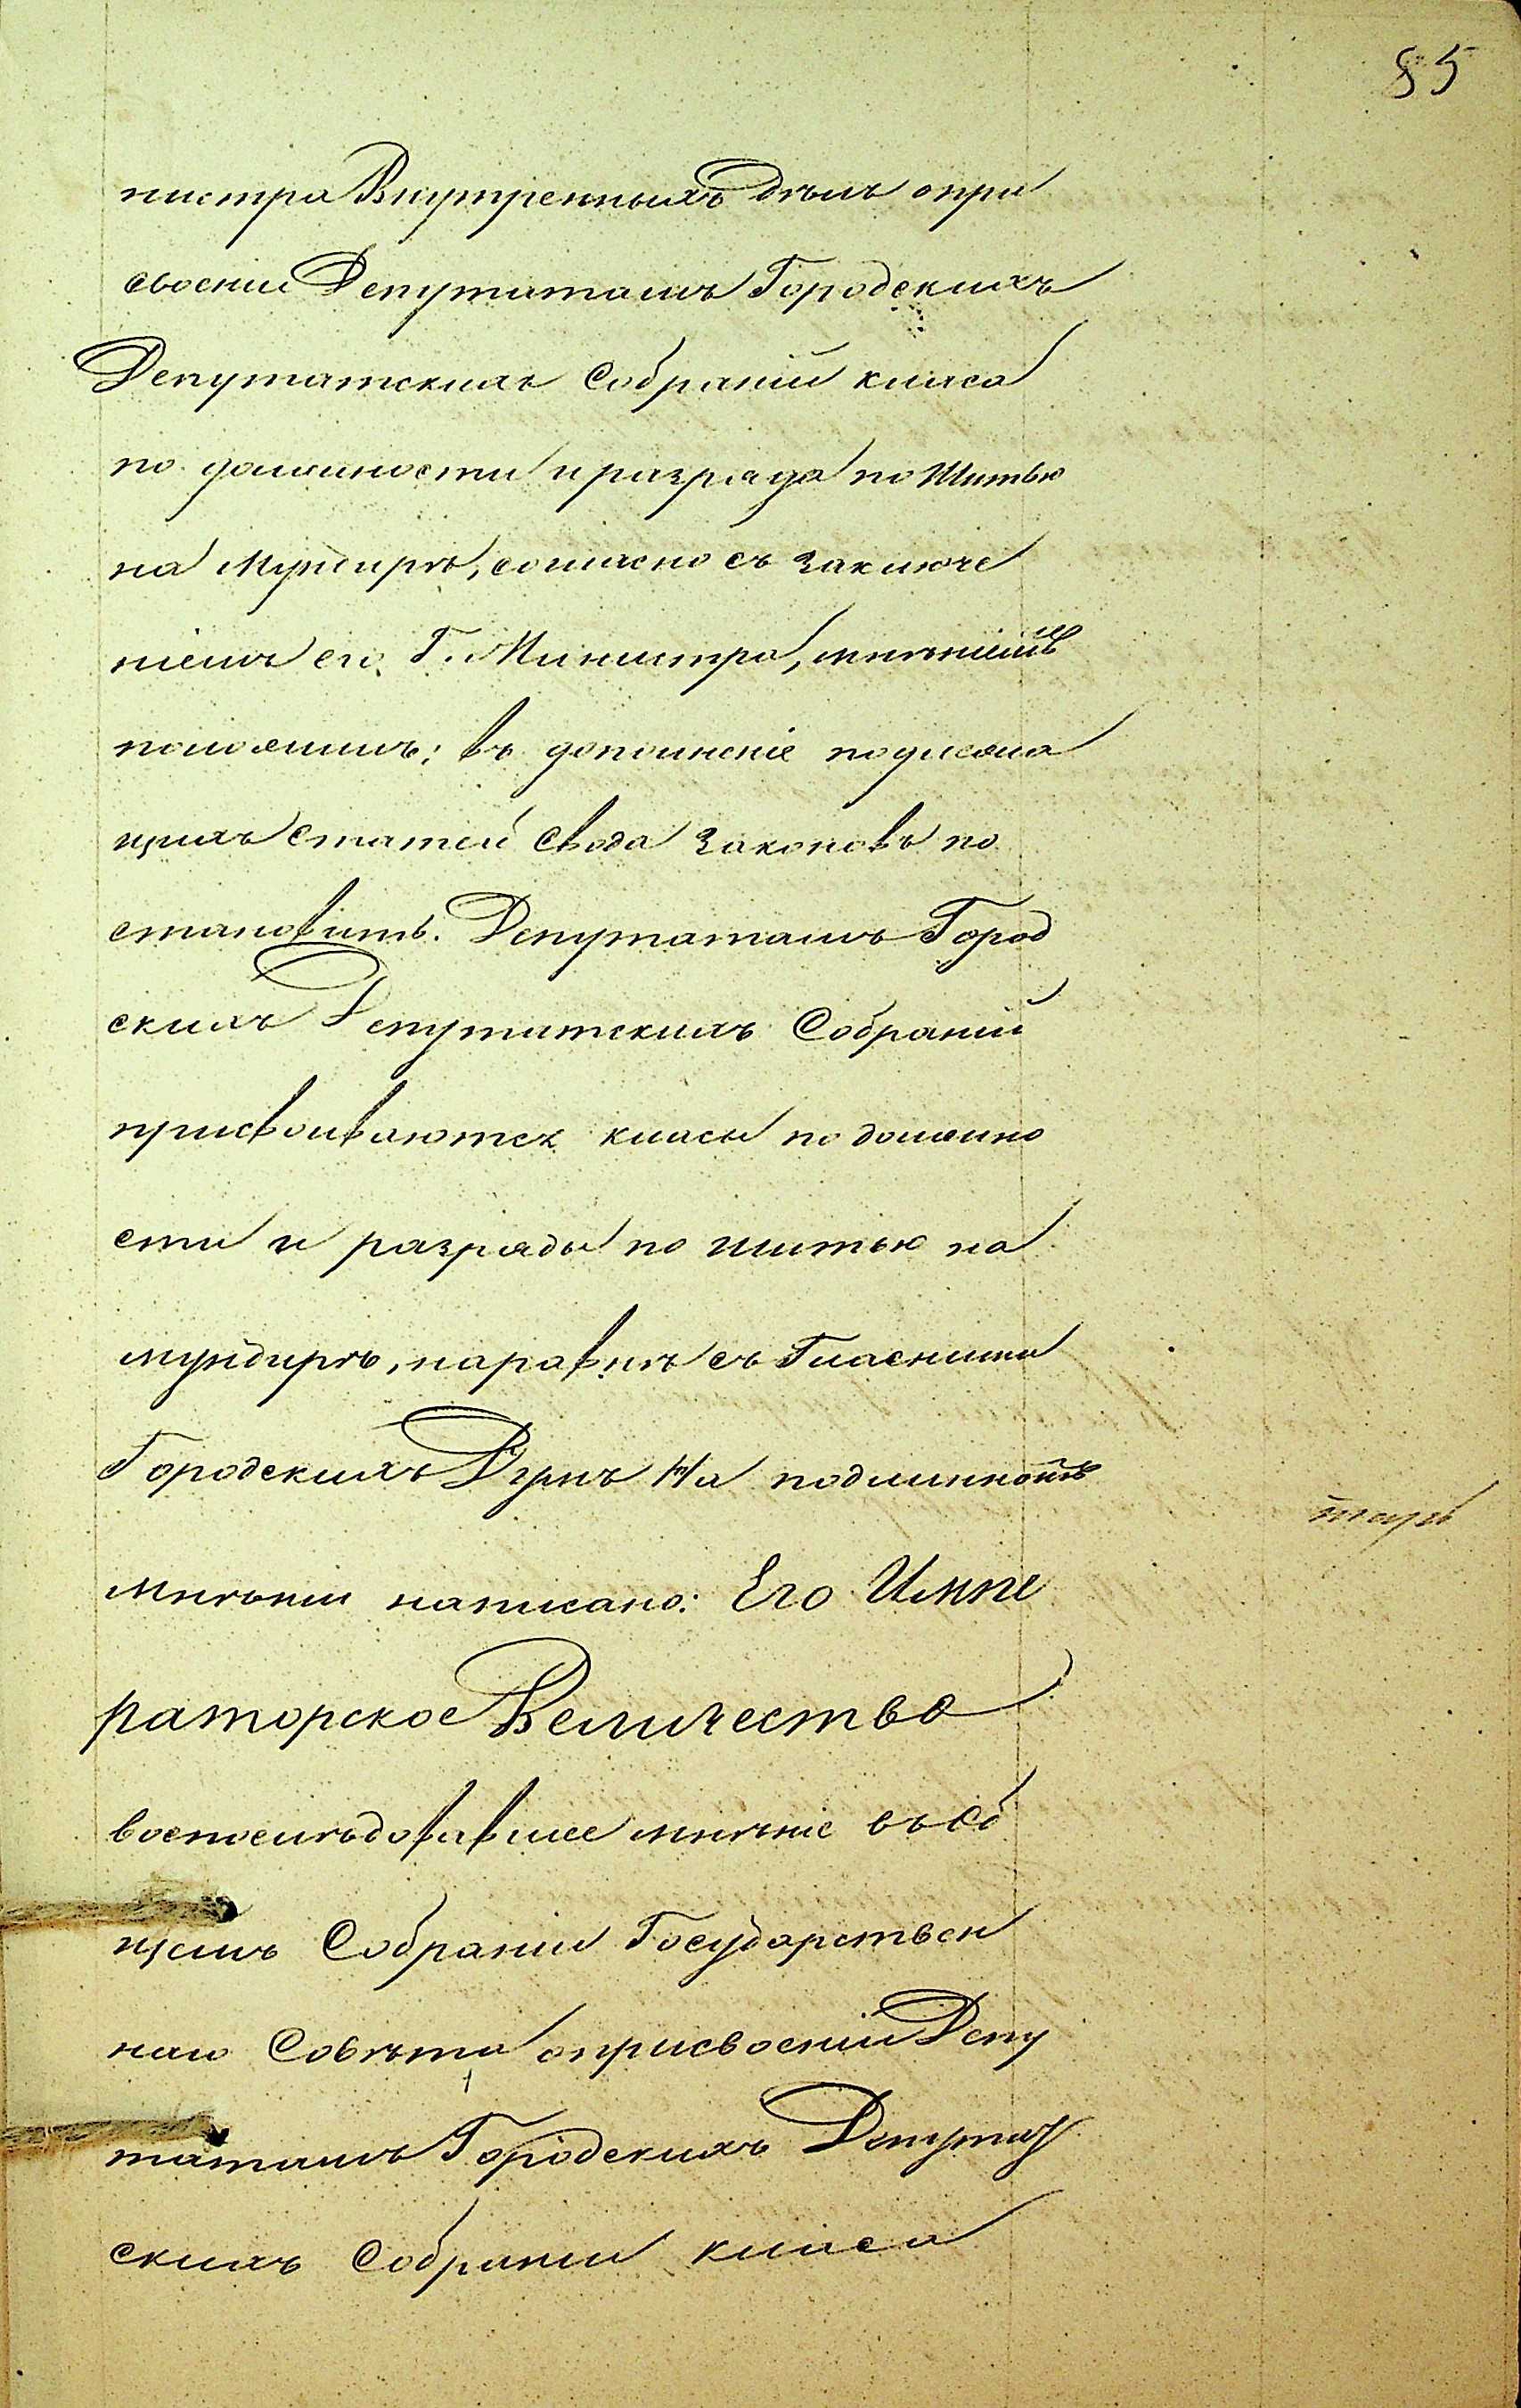 85
нистра Внутренныхъ Дѣлъ опри
своеніи Депутатамъ Городскихъ
Депутатскихъ Собраній класа
по должности и разряда по Шитью
на Мундирѣ, согласно съ Заключе
ніемъ его, Г. Министра, мнѣніемъ
положилъ: въ дополненіе подлежа
щихъ Статей Свода Законовъ по
становить. Депутатамъ Город
скихъ Депутатскихъ Собраній
присвоиваются класы по должно
сти и разряды по шитью на
мундирѣ, наравнѣ съ Гласными
Городскихъ Думъ На подлинномъ
мнѣніи написано: Его Импе
раторское Величество
воспослѣдовавшее мнѣніе въ Об
щемъ Собраніи Государствен
наго Совѣта оприсвоеніи Депу
татамъ Городскихъ Депутат
скихъ Собраніи класа